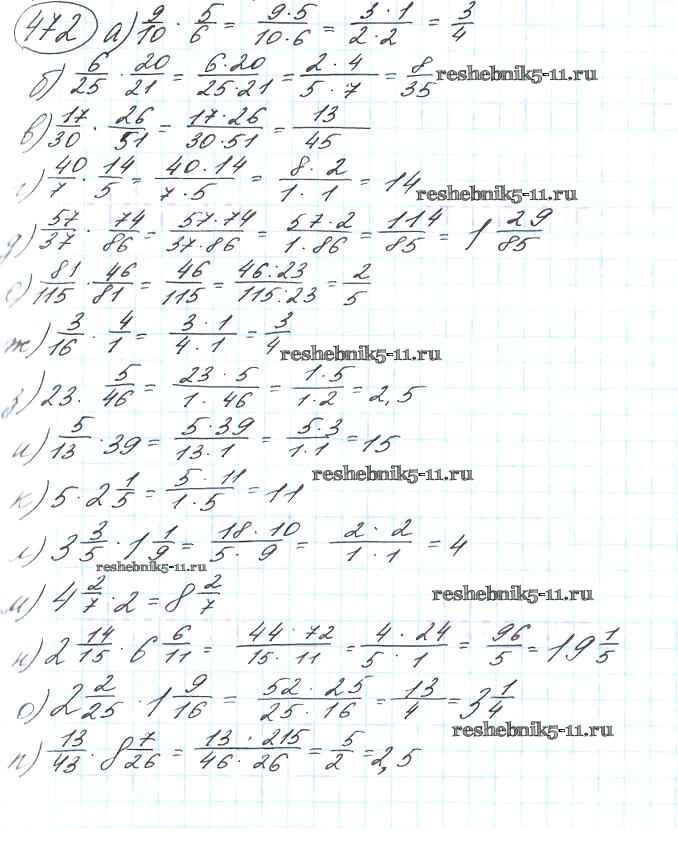 472 а) 9/10 · 5/6 = 9·5/10·6 = 3·1/2·2 = 3/4
б) 6/25 · 20/21 = 6·20/25·21 = 2·4/5·7 = 8/35 reshebnik5-11.ru
в) 17/30 · 26/51 = 17·26/30·51 = 13/45
г) 40/7 · 14/5 = 40·14/7·5 = 8·2/1·1 = 14 reshebnik5-11.ru
д) 57/37 · 74/86 = 57·74/37·86 = 57·2/1·86 = 114/85 = 1 29/85
е) 81/115 · 46/81 = 46/115 = 46:23/115:23 = 2/5
ж) 3/16 · 4/1 = 3·1/4·1 = 3/4
reshebnik5-11.ru
з) 23 · 5/46 = 23·5/1·46 = 1·5/1·2 = 2,5
и) 5/13 · 39 = 5·39/13·1 = 5·3/1·1 = 15
reshebnik5-11.ru
к) 5 · 2 1/5 = 5·11/1·5 = 11
л) 3 3/5 · 1 1/9 = 18·10/5·9 = 2·2/1·1 = 4
reshebnik5-11.ru
м) 4 2/7 · 2 = 8 2/7 reshebnik5-11.ru
н) 2 14/15 · 6 6/11 = 44·72/15·11 = 4·24/5·1 = 96/5 = 19 1/5
о) 2 2/25 · 1 9/16 = 52·25/25·16 = 13/4 = 3 1/4
reshebnik5-11.ru
п) 13/43 · 8 7/26 = 13·215/46·26 = 5/2 = 2,5